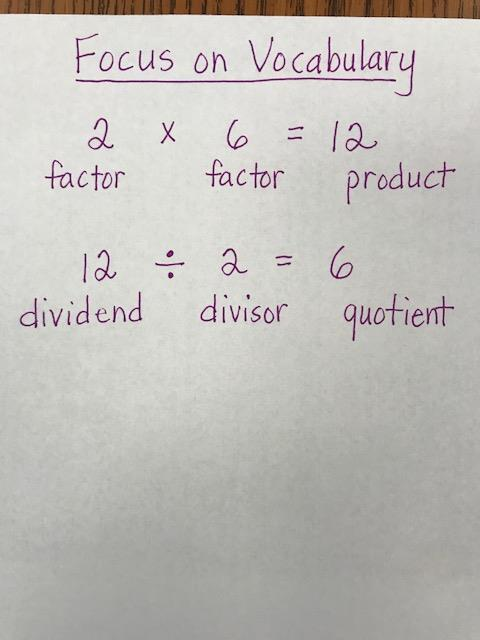 Focus on Vocabulary
2 x 6 = 12
factor factor product
12 ÷ 2 = 6
dividend divisor quotient